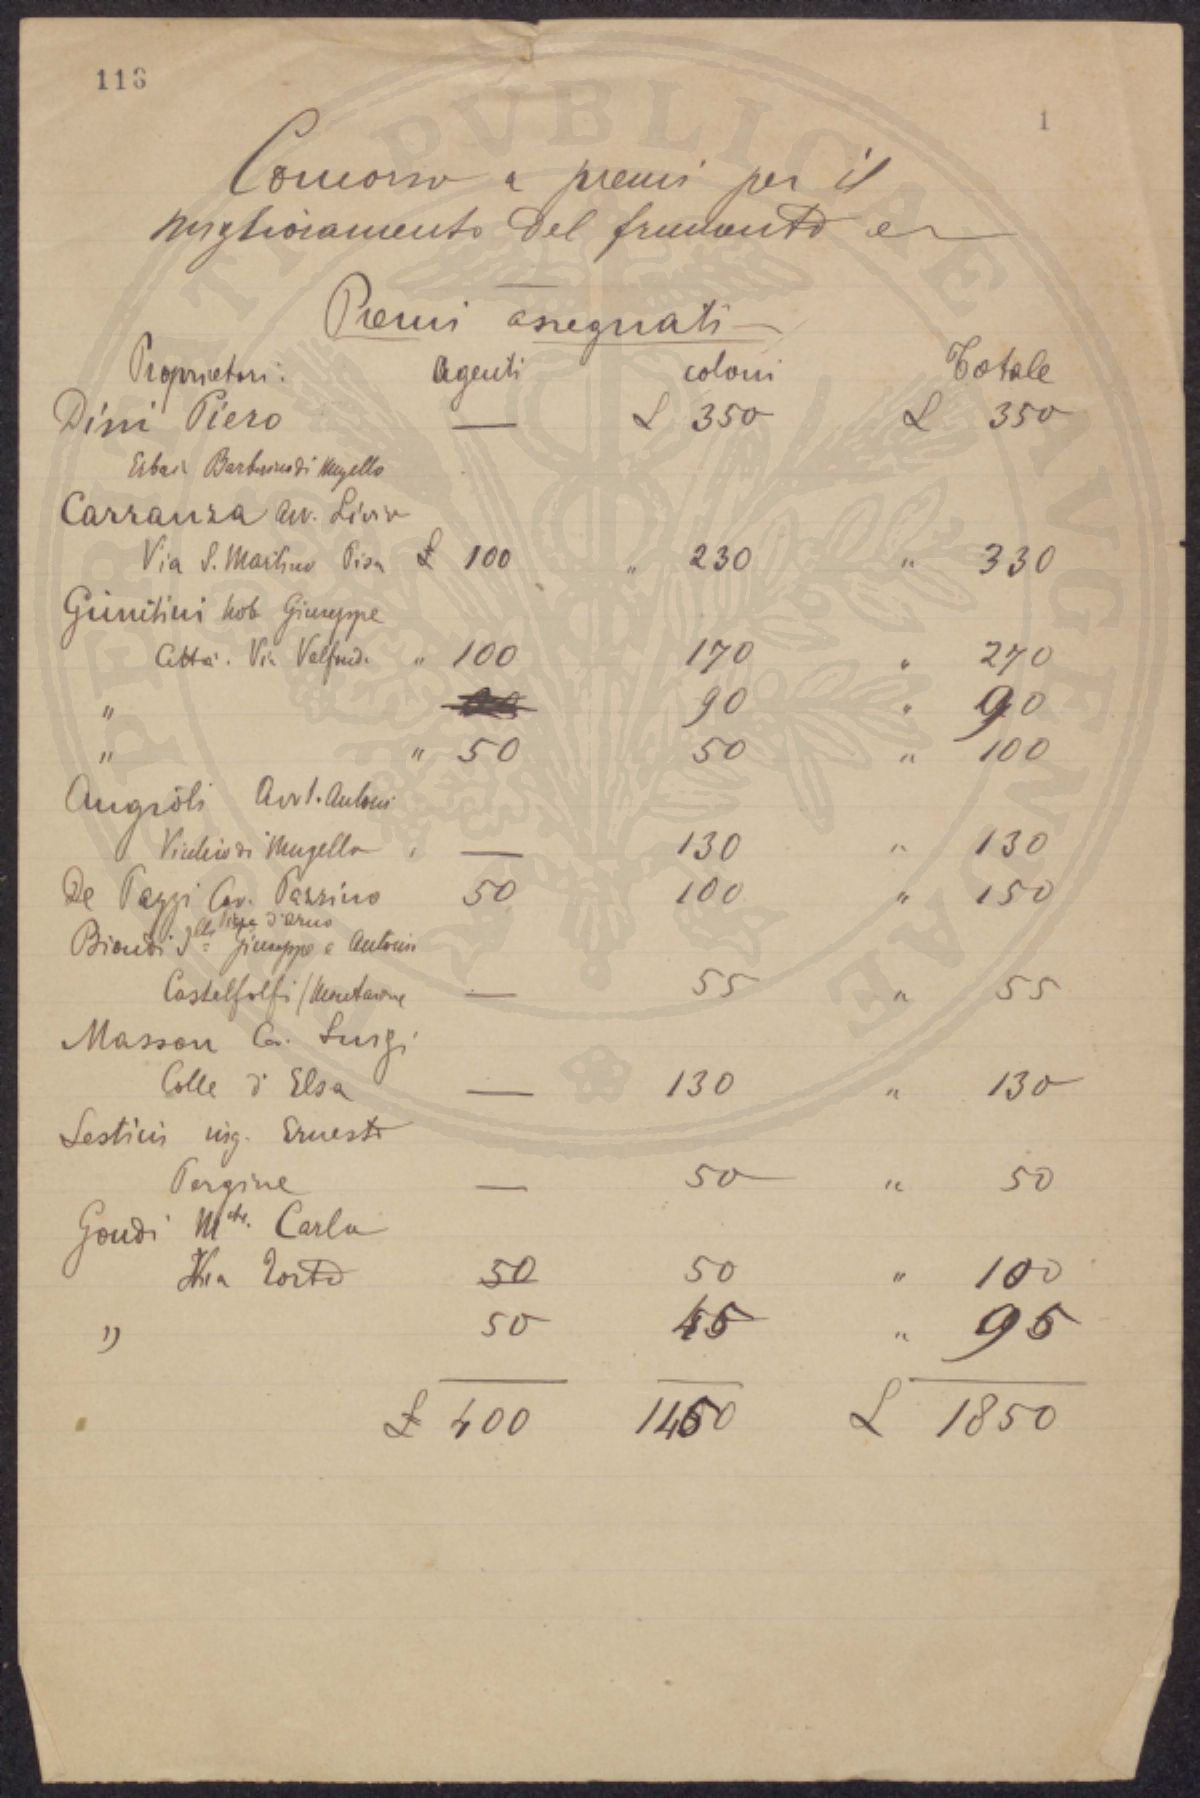 116
1
Concorso a premi per il
miglioramento del frumento
Premi assegnati
Proprietari. Agenti coloni Totale
Dini Piero — £ 350 £ 350
Barberino di Mugello
Carranza Avv. Livio
Via S. Martino Pisa £ 100 " 230 " 330
Giuntini Nob Giuseppe
Città. Via Valfond. " 100 170 " 270
" 90 " 90
" " 50 50 " 100
Angioli Avv. Antoni
Vicchio di Mugello — 130 " 130
De Pazzi Cav. Pazzino 50 100 " 150
d'arno
Biondi Giuseppe e Antonio
Castelfalfi / Montaione — 55 " 55
Masson Cav. Luigi
Colle d'Elsa — 130 " 130
Sestini ing. Ernesto
Pergine — 50 " 50
Gondi M. Carlo
Via Torta 50 50 " 100
" 50 45 " 95
£ 400 1450 £ 1850
PVBLICAE